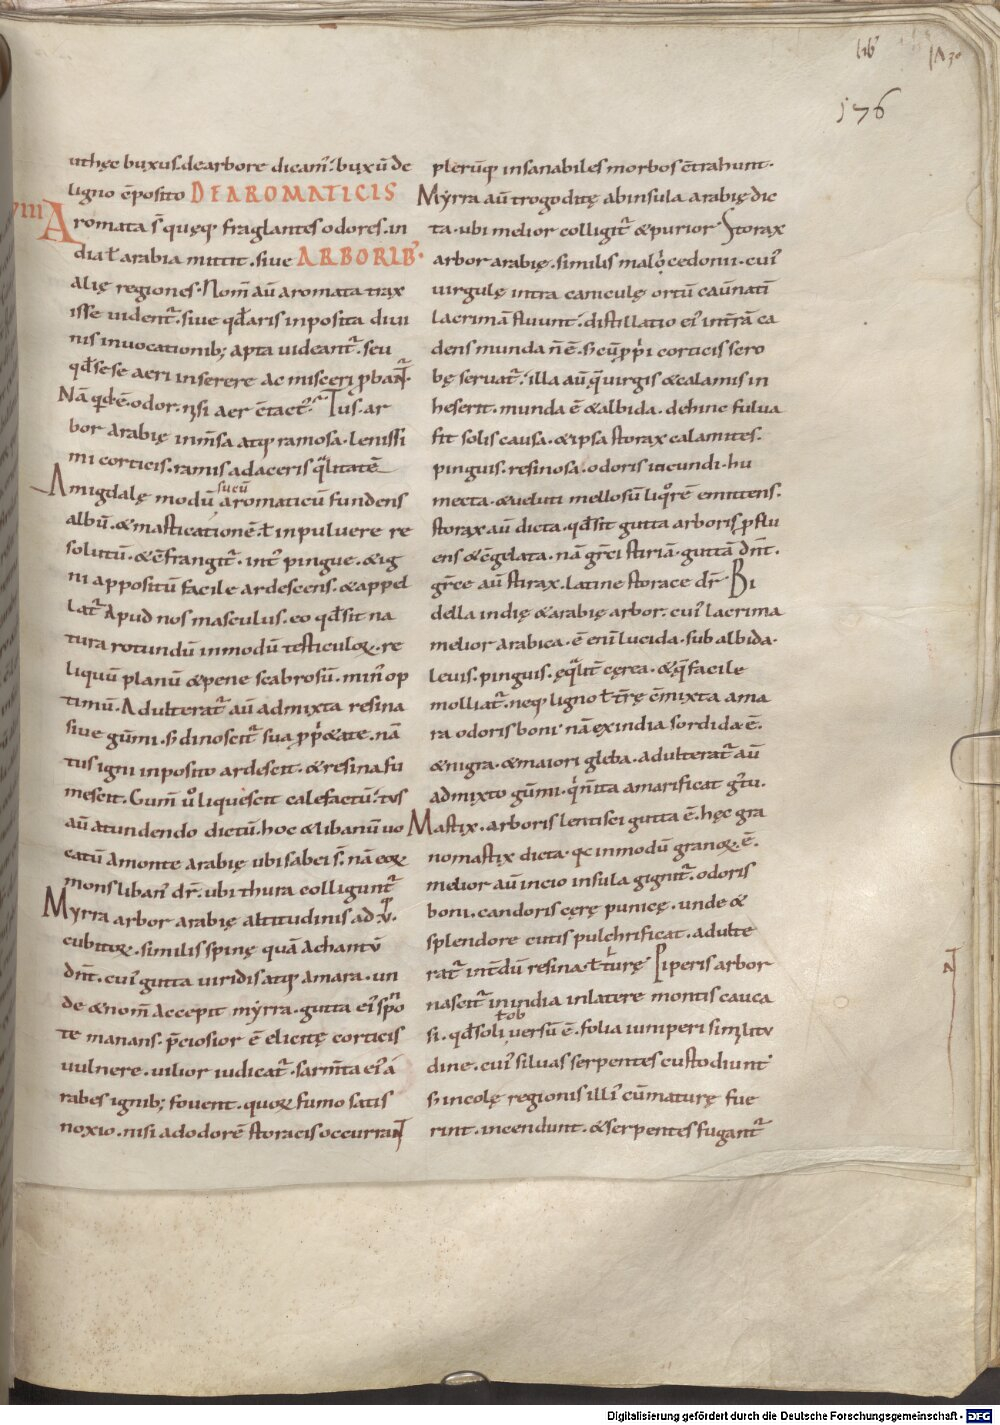 lib
176
ut hęc buxus. de arbore dicam̃. buxũ de
ligno cõposito DE AROMATICIS
VIII Aromata s̃ quęq; fraglantes odores. in
dia ł arabia mittit. siue ARBORIB;
alię regiones. Nom̃ aũ aromata trax
isse uident̃. siue qđ aris inposita diui
nis inuocationib; apta uideant̃. seu
qđ sese aeri inserere ac misceri ꝓbant̃.
Nã qd ẽ. odor. nisi aer cõtact̃. Tus. ar
bor arabię inm̃sa atq; ramosa. lenissi
mi corticis. ramis ad aceris q̃litatẽ
Amigdalę modũ sucũ aromaticũ fundens
albũ. & masticationẽ. ł in puluere re
solutũ. & cũ frangit̃. int̃ pingue. & ig
ni appositũ facile ardescens. & appel
lat̃ Apud nos masculus. eo qđ sit na
tura rotundũ in modũ testiculoꝝ. re
liquũ planũ & pene scabrosũ. min̾ op
timũ. Adulterat̃ aũ admixta resina
siue gũmi. s; dinoscit̃ sua ꝓpi&ate. nã
tus igni inposito ardescit. & resina fu
mescit. Gum̃ ũ liquescit calefactũ. tus
aũ a tundendo dictũ. hoc & libanũ uo
catũ a monte arabię ubi sabei s̃. nã eoꝝ
mons liban̾ dr̃. ubi thura colligunt̃
Myrra arbor arabię altitudinis ad q̃. v.
cubitoꝝ. similis spinę quã achantũ
dñt. cui̾ gutta uiridis atq; amara. un
de & nom̃ accepit myrra. gutta ei̾ spõ
te manans. p̃ciosior ẽ elicitę corticis
uulnere. uilior iudicat̃. sarm̃ta ei̾ a
rabes ignib; fouent. quoꝝ fumo satis
noxio. nisi ad odorẽ storacis occurrant
plerũq; insanabiles morbos cõtrahunt.
Myrra aũ trogoditę ab insula arabię dic
ta. ubi melior colligit̃ & purior Storax
arbor arabię. similis malo cedonii. cui̾
uirgulę intra caniculę ortũ cauñati
lacrimã fluunt. distillatio ei̾ in t̃rã ca
dens munda ñ ẽ. s; cũ ꝓprii corticis sero
bę seruat̃. illa aũ. q̃ uirgis & calamis in
heserit. munda ẽ & albida. dehinc fulua
fit solis causa. & ipsa storax calamites.
pinguis. resinosa. odoris iucundi. hu
mecta. & ueluti mellosũ liq̃rẽ emittens.
storax aũ dicta. qđ sit gutta arboris ꝓflu
ens & cõgelata. nã gr̃ci stiriã. guttã dñt.
gr̃ce aũ stirax. latine storace dr̃ Bi
della indię & arabię arbor. cui̾ lacrima
melior arabica. ẽ eni̾ lucida. subalbida.
leuis. pinguis. ęq̃lit̃ cęrea. & q̃ facile
molliat̃. neq; ligno ł t̃rę cõmixta ama
ra odoris boni. nã ex india sordida ẽ.
& nigra. & maiori gleba. adulterat̃ aũ
admixto gũmi. q̃ ñ ita amarificat g̃tũ.
Mastix. arboris lentisci gutta ẽ. hęc gra
nomastix dicta. qc in modũ granoꝝ. ẽ.
melior aũ in cio insula gignit̃. odoris
boni. candoris cęrę punicę. unde &
splendore cutis pulchrificat. adulte
rat̃ int̃dũ resina. ł turę Piperis arbor
nascit̃ in india in latere montis cauca
si. qđ soli ł ob uersũ ẽ. folia iuniperi similitu
dine. cui̾ siluas serpentes custodiunt
s; incolę regionis illi̾ cũ maturę fue
rint. incendunt. & serpentes fugant̃
Digitalisierung gefördert durch die Deutsche Forschungsgemeinschaft - DFG